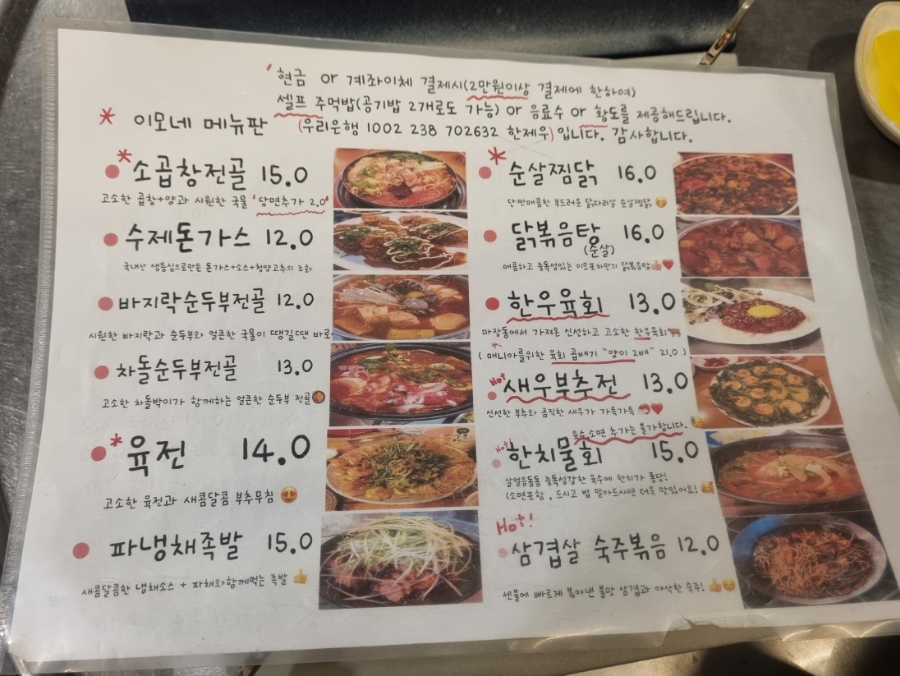 현금 or 계좌이체 결제시(2만원이상 결제에 한하여)
셀프 주먹밥(공기밥 2개로도 가능) or 음료수 or 황도를 제공해드립니다.
* 이모네 메뉴판 (우리은행 1002 238 702632 한제우)입니다. 감사합니다.
* 소곱창전골 15.0
고소한 곱창+양과 시원한 국물 "당면추가 2.0"
수제돈가스 12.0
국내산 생등심으로만든 돈가스+소스+청양고추의 조화
바지락순두부전골 12.0
시원한 바지락과 순두부와 얼큰한 국물이 땡길땐 바로
차돌순두부전골 13.0
고소한 차돌박이가 함께하는 얼큰한 순두부 전골
* 육전 14.0
고소한 육전과 새콤달콤 부추무침 😍
파냉채족발 15.0
새콤달콤한 냉채소스 + 파채와함께먹는 족발 👍
* 순살찜닭 16.0
단짠매콤한 부드러운 닭다리살 순살찜닭
닭볶음탕 16.0
(순살)
매콤하고 중독성있는 이모포차만의 닭볶음탕👍❤️
한우육회 13.0
마장동에서 가져온 신선하고 고소한 한우육회
(매니아를위한 육회 곱빼기 "양이 2배" 21.0)
Hot 새우부추전 13.0
신선한 부추와 큼직한 새우가 가득가득
육수,소면 추가는 불가합니다.
Hot! 한치물회 15.0
살얼음동동 중독성강한 육수에 한치가 퐁당!
(소면포함, 드시고 밥 말아드시면 더욱 맛있어요!
Hot!
삼겹살 숙주볶음 12.0
센불에 빠르게 볶아낸 불맛 삼겹과 아삭한 숙주!